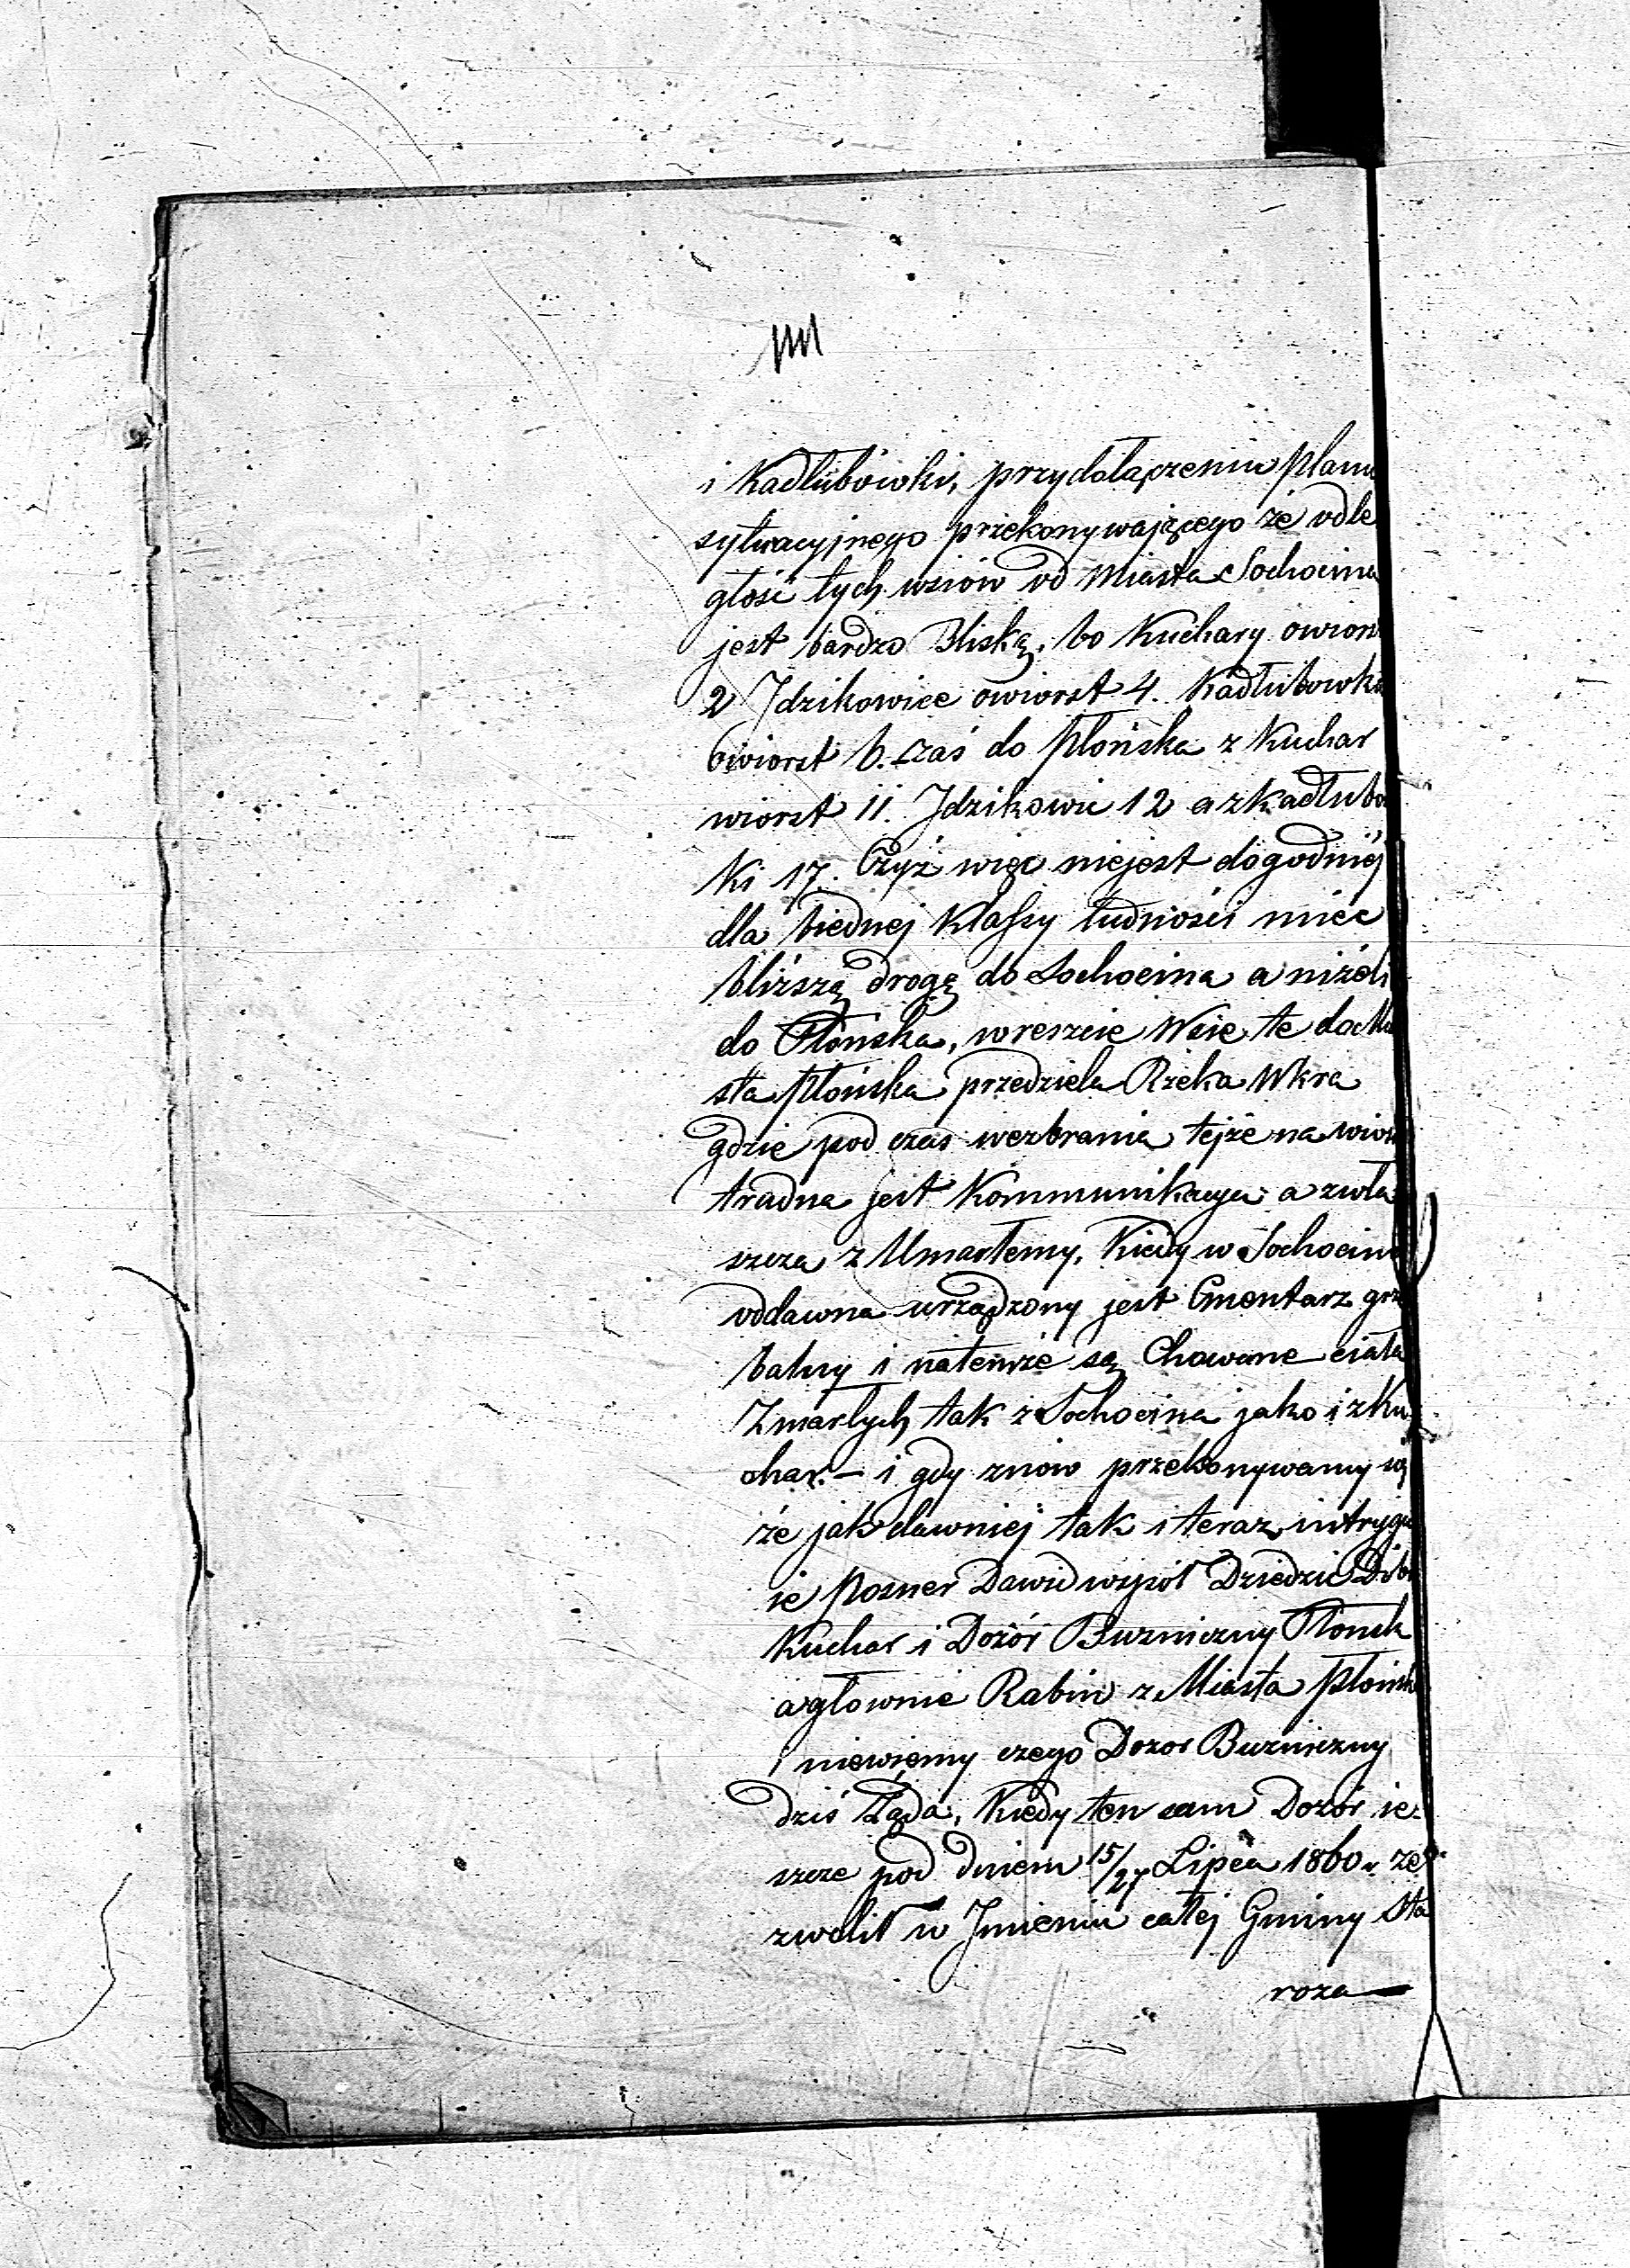 i Kadłubówki, przy dołączeniu planu
sytuacyjnego przekonywającego że odle
głość tych wsiów od Miasta Sochocina
jest bardzo Bliską, bo Kuchary owiorst
2 Jdzikowice owiorst 4. Kadłubowka
owiorst 6. zaś do Płońska z Kuchar
wiorst 11. Jdzikowic 12 a z Kadłubo
Ki 17. Czyż więc niejest dogodniéj
dla biednej Klassy ludności mieć
bliższą drogę do Sochocina a niżeli
do Płońska, wreszcie Wsie te do Mia
sta Płońska przedziela Rzeka Wkra
gdzie pod czas wezbrania tejże na wios
trudna jest Kommunikacya a zwła
szcza z Umarłemy, Kiedy w Sochocinie
oddawna urządzony jest Cmentarz grze
balny i natemże są Chowane ciała
Zmarłych tak z Sochocina jako i z Ku
char. — i gdy znow przekonywamy się
że jak dawniej tak i teraz intrygu
ie Posner Dawid wspoł Dziedzic Dóbr
Kuchar i Dozór Buzniczny Płonsk
a głownie Rabin z Miasta Płońska
i niewiemy czego Dozor Buzniczny
dziś Żąda, Kiedy ten sam Dozór ie
szcze pod dniem 15/27 Lipca 1860 r. ze
zwolił w Jmieniu całej Gminy Sta
roza—